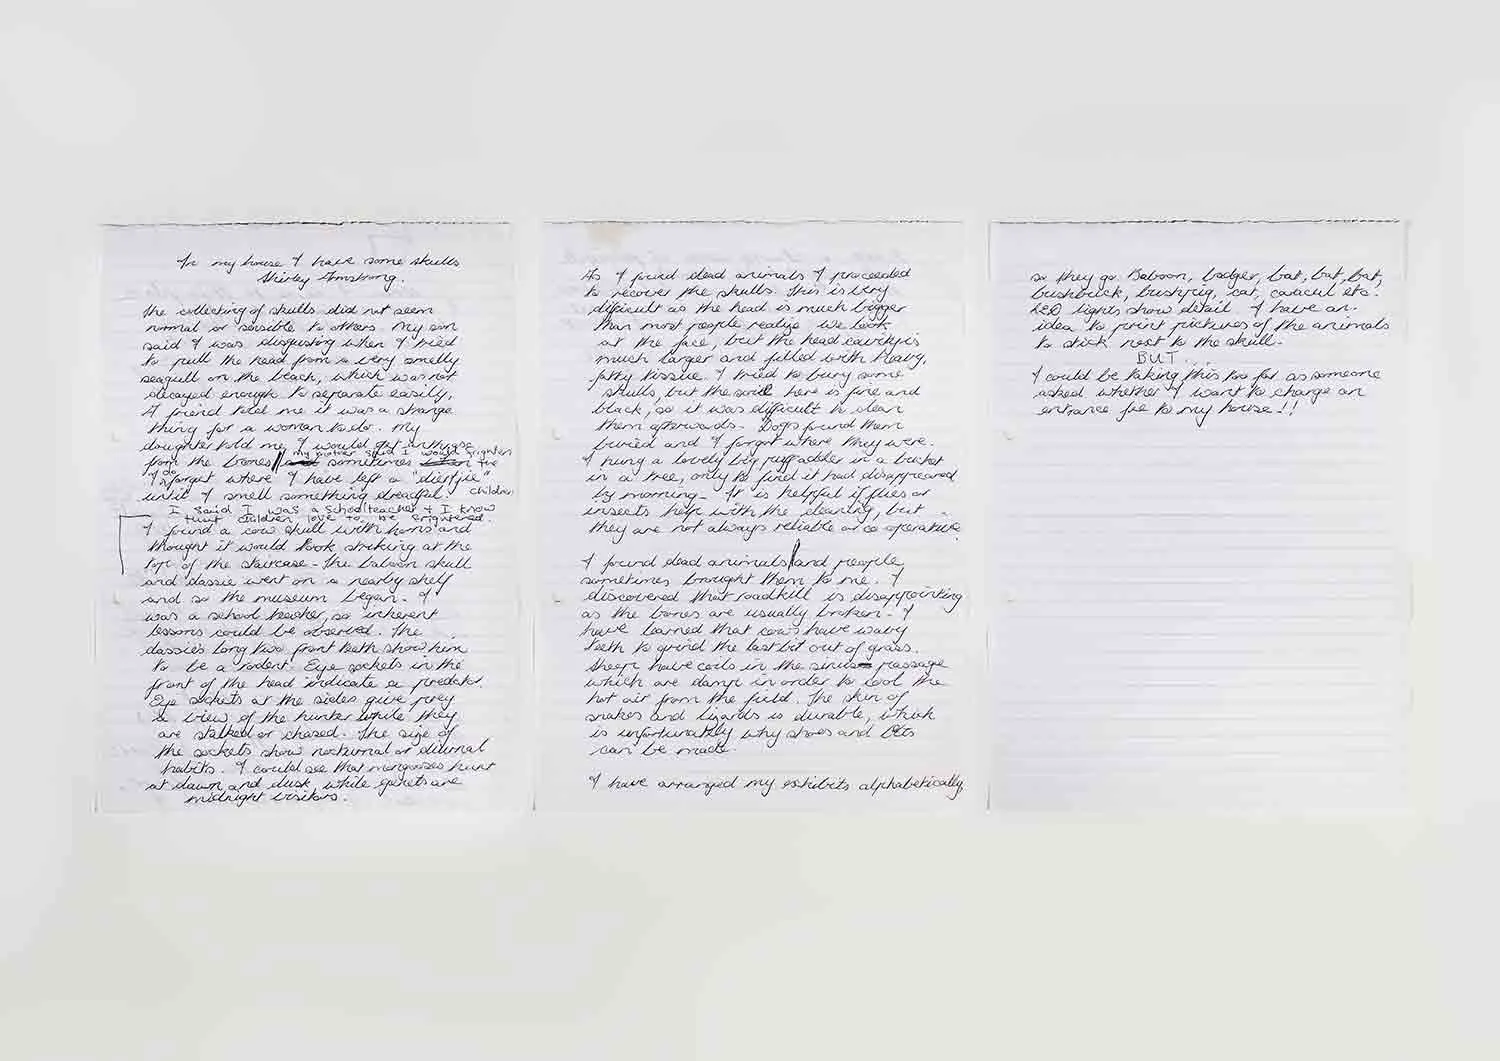 In my house I have some skulls
Shirley Armstrong.
The collecting of skulls did not seem
normal or sensible to others. My son
said I was disgusting when I tried
to pull the head from a very smelly
seagull on the beach, which was not
decayed enough to separate easily,
A friend told me it was a strange
thing for a woman to do. My
daughter told me I would get anthrax
my mother said I would frighten
from the bones // sometimes the
I do forget where I have left a "diertjie"
until I smell something dreadful. children
I said I was a schoolteacher & I know
that children love to be frightened.
I found a cow skull with horns and
thought it would look striking at the
top of the staircase - The baboon skull
and dassie went on a nearby shelf
and so the museum began. I
was a school teacher, so inherent
lessons could be observed. The
dassie's long two front teeth show him
to be a rodent. Eye sockets in the
front of the head indicate a predator.
Eye sockets at the sides give prey
a view of the hunter while they
are stalked or chased. The size of
the sockets show nocturnal or diurnal
habits. I could see that mongooses hunt
at dawn and dusk while genets are
midnight visitors.
As I found dead animals I proceeded
to recover the skulls. This is very
difficult as the head is much bigger
than most people realize we look
at the face, but the head cavity is
much larger and filled with heavy,
fatty tissue. I tried to bury some
skulls, but the soil here is fine and
black, so it was difficult to clean
them afterwards. Dogs found them
buried and I forgot where they were.
I hung a lovely big puffadder in a bucket
in a tree, only to find it had disappeared
by morning. It is helpful if flies or
insects help with the cleaning, but
they are not always reliable or co operative.
I found dead animals and people
sometimes brought them to me. I
discovered that roadkill is disappointing
as the bones are usually broken. I
have learned that cows have wavy
teeth to grind the last bit out of grass.
Sheep have coils in the sinus passage
which are damp in order to cool the
hot air from the field. The skin of
snakes and lizards is durable, which
is unfortunately why shoes and belts
can be made.
I have arranged my exhibits alphabetically,
so they go Baboon, badger, bat, bat, bat,
bushbuck, bushpig, cat, caracul etc.
LED lights show detail. I have an
idea to print pictures of the animals
to stick next to the skull.
BUT....
I could be taking this too far as someone
asked whether I want to charge an
entrance fee to my house!!